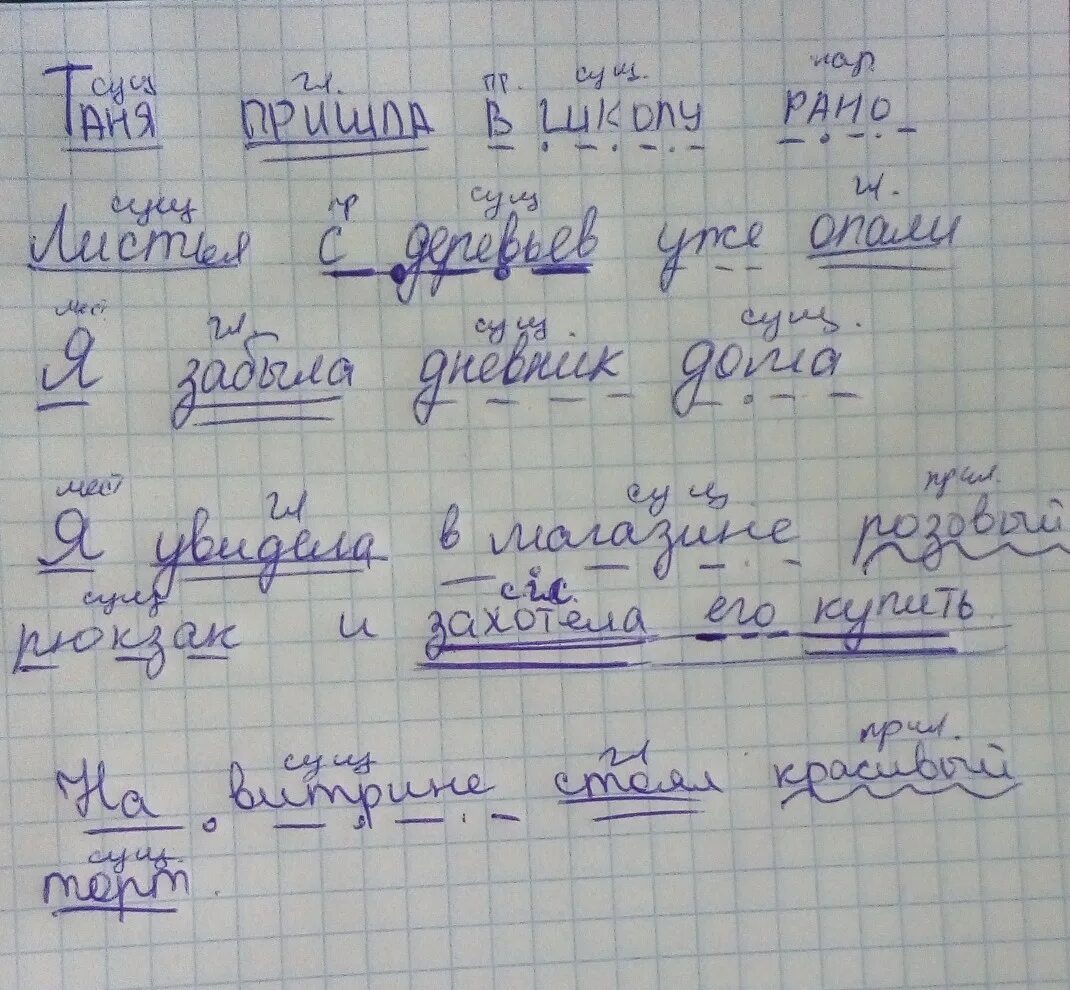 сущ гл. пр. сущ. нар.
Таня пришла в школу рано
сущ пр сущ гл.
Листья с деревьев уже опали
мест гл. сущ. сущ.
Я забыла дневник дома
мест гл сущ прил.
Я увидела в магазине розовый
сущ сгс.
рюкзак и захотела его купить
сущ гл прил.
На витрине стоял красивый
сущ.
торт.